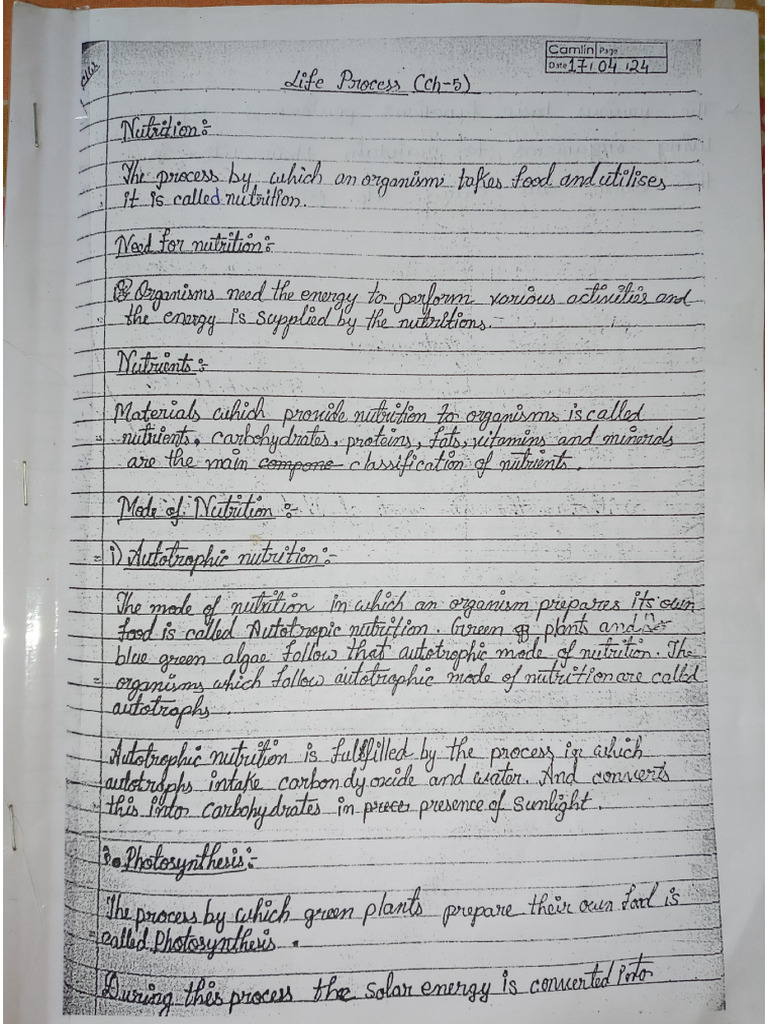 C/W
Camlin Page
Date 17, 04, 24
Life Process (Ch-5)
Nutrition :-
The process by which an organism takes food and utilises
it is called nutrition.
Need for nutrition :-
Organisms need the energy to perform various activities and
the energy is supplied by the nutritions.
Nutrients :-
Materials which provide nutrition to organisms is called
nutrients. carbohydrates, proteins, fats, vitamins and minerals
are the main compone classification of nutrients.
Mode of Nutrition :-
i) Autotrophic nutrition :-
The mode of nutrition in which an organism prepares its own
food is called Autotropic nutrition. Green of plants and
blue green algae follow that autotrophic mode of nutrition. The
organisms which follow autotrophic mode of nutrition are called
autotrophs.
Autotrophic nutrition is fullfilled by the process in which
autotrophs intake carbondyoxide and water. And converts
this into carbohydrates in prece presence of sunlight.
Photosynthesis :-
The process by which green plants prepare their own food is
called Photosynthesis.
During this process the solar energy is converted into